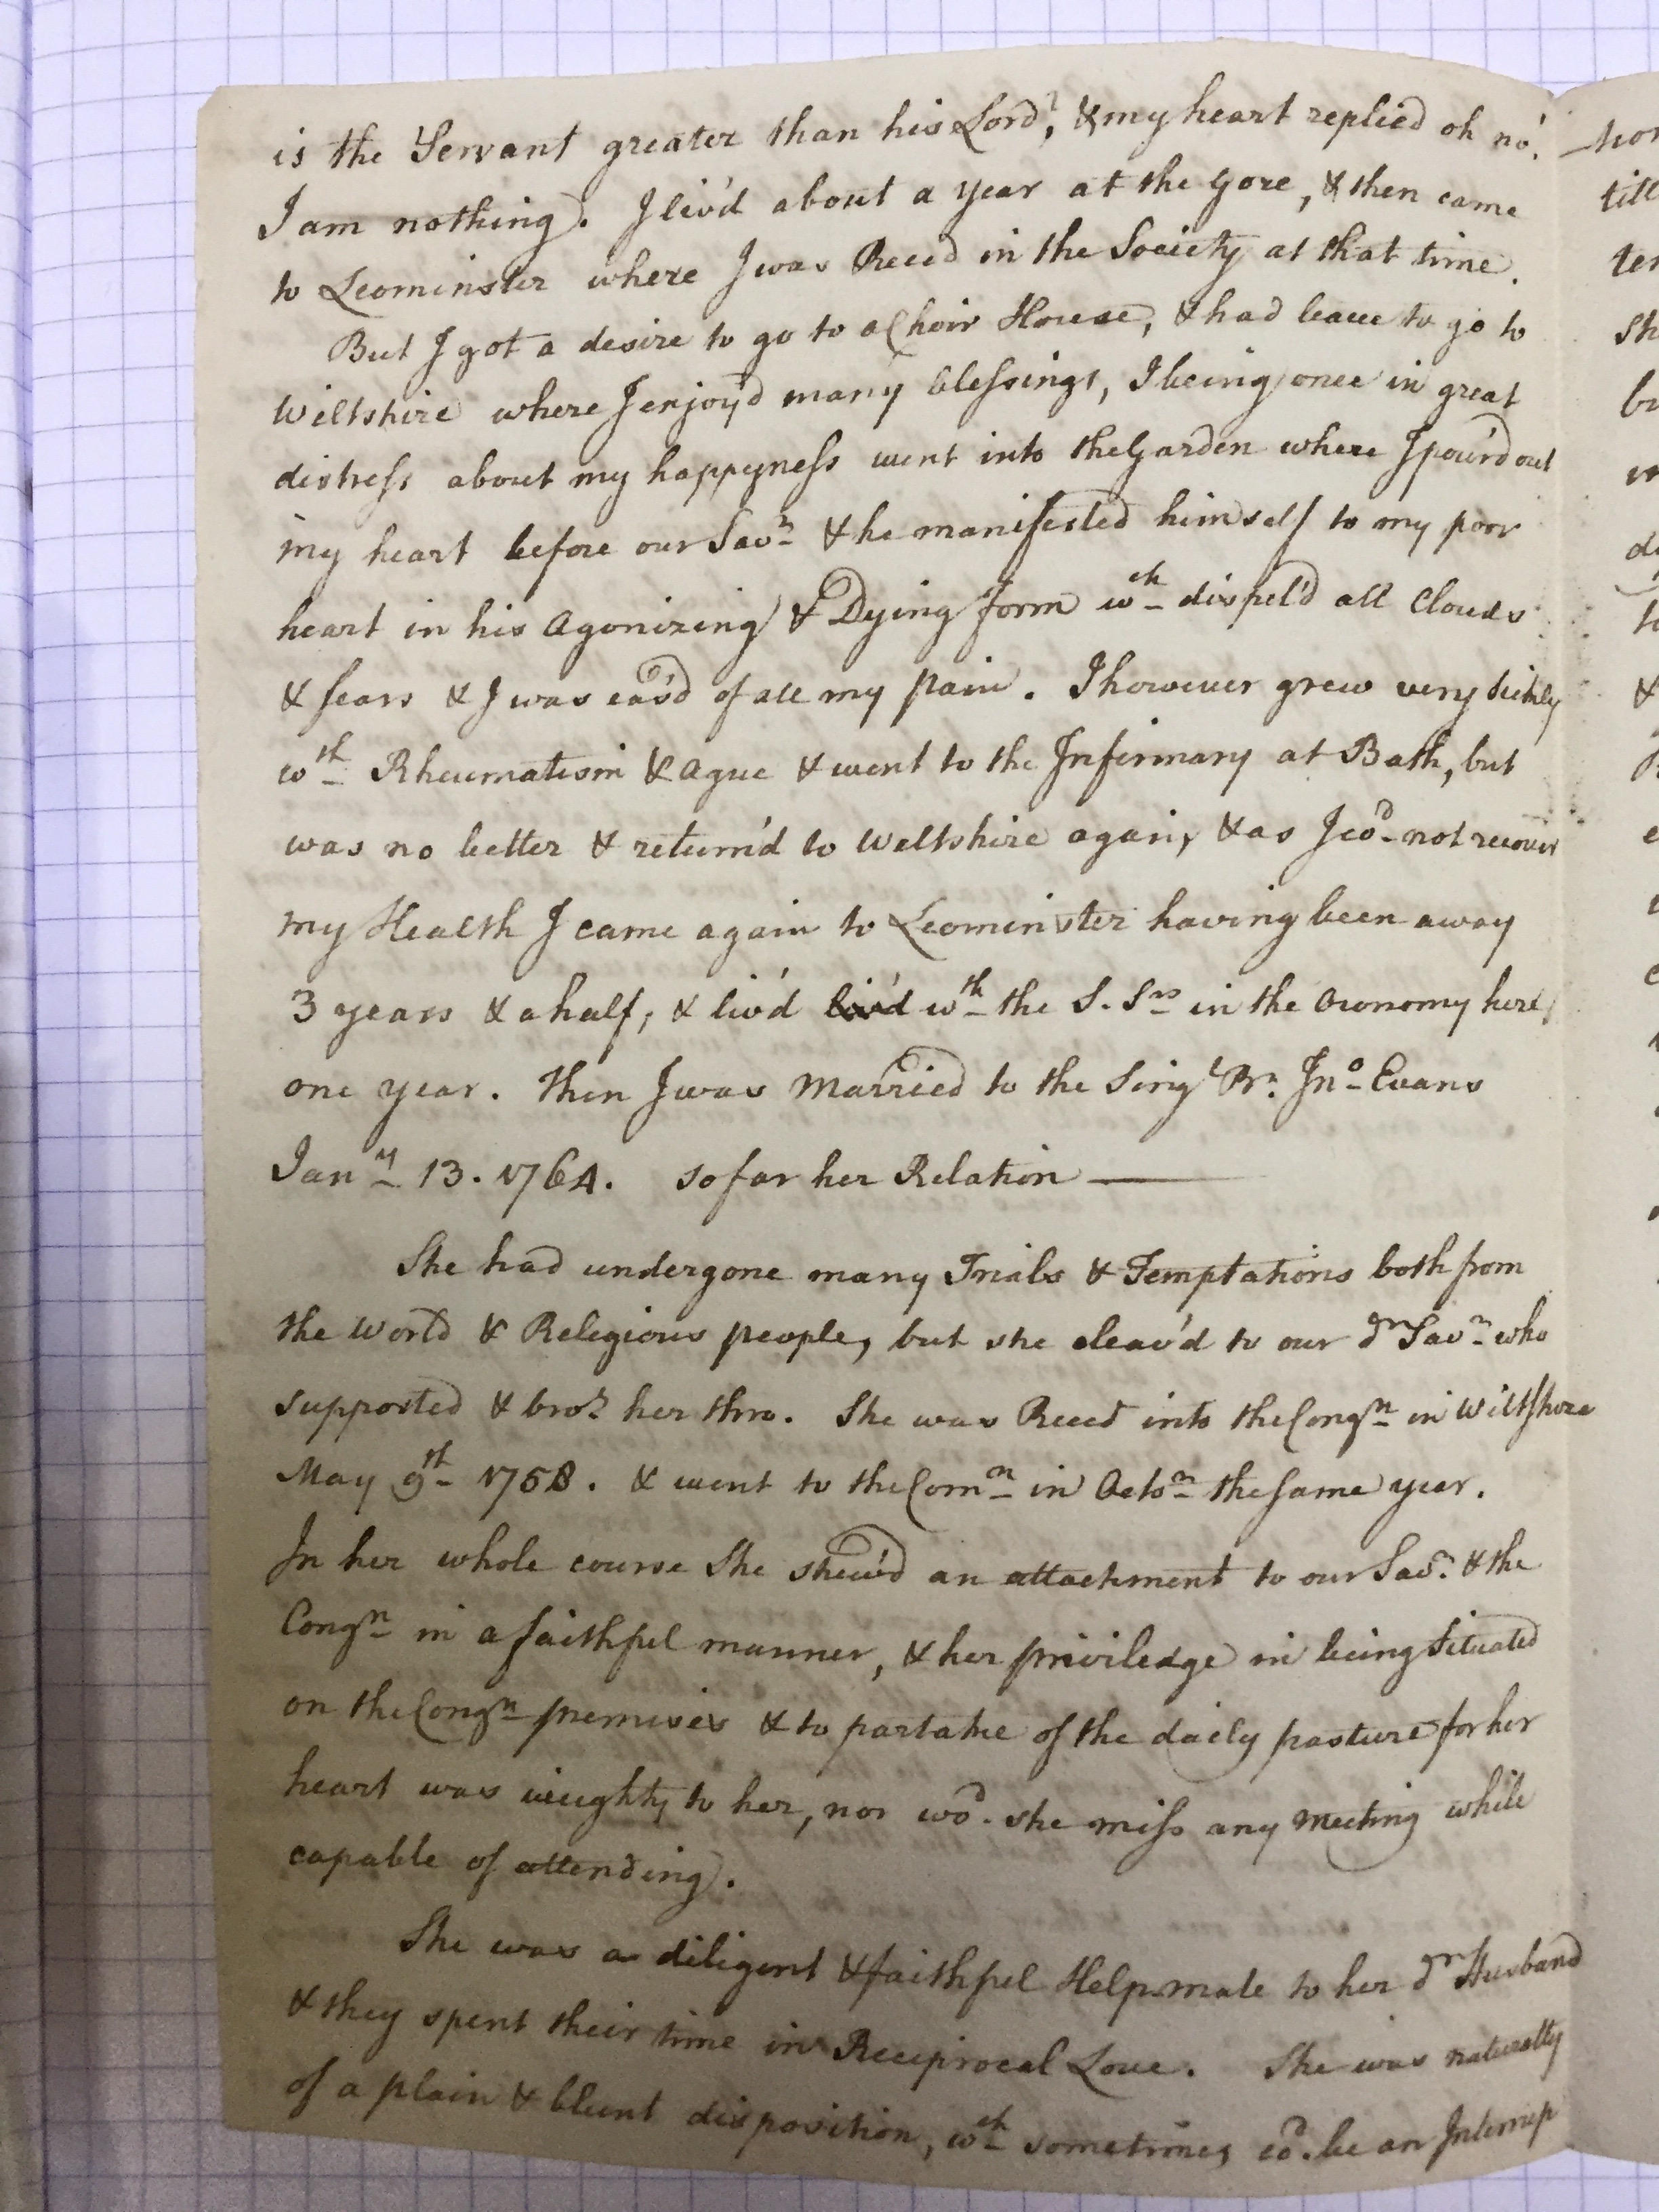 is the Servant greater than his Lord?, & my heart replied oh no!
I am nothing. I liv'd about a year at the Gore, & then came
to Leominster where I was Recd in the Society at that time.
But I got a desire to go to a Choir House, & had leave to go to
Wiltshire where I enjoy'd many blessings, I being once in great
distress about my happyness went into the Garden where I pour'd out
my heart before our Savr & he manifested himself to my poor
heart in his Agonizing & Dying form wch dispel'd all Clouds
& fears & I was eas'd of all my pain. I however grew very sickly
wth Rheumatism & Ague & went to the Infirmary at Bath, but
was no better & return'd to Wiltshire again, & as I cod not recover
my Health I came again to Leominster having been away
3 years & a half, & liv'd liv'd wth the S. Srs in the Oeconomy here,
one year. Then I was Married to the Singl Br. Jno Evans
Jany 13. 1764. so far her Relation —
She had undergone many Trials & Temptations both from
the World & Religious people, but she cleav'd to our dr Savr who
supported & brot her thro. She was Recd into the Congn in Wiltshire
May 9th 1758. & went to the Comn in Octor the same year.
In her whole course She shew'd an attachment to our Savr. & the
Congn in a faithful manner, & her priviledge in being situated
on the Congn premises & to partake of the daily pasture for her
heart was weighty to her, nor wod. she miss any Meeting while
capable of attending.
She was a diligent & faithful Helpmate to her dr Husband
& they spent their time in Reciprocal Love. She was naturally
of a plain & blunt disposition, wch sometimes cod. be an Interrup
till